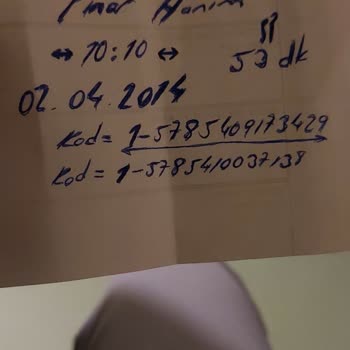 Pınar Hanım
↔ 10:10 ↔ 53 dk
02.04.2014
Kod = 1-5785409173429
Kod = 1-5785410037138